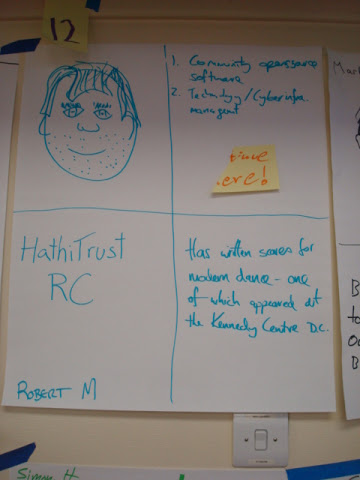 12
1. Community opensource
software
2. Technology/Cyberinfra
managemt
time
ere!
HathiTrust
RC
Has written scores for
modern dance - one
of which appeared at
the Kennedy Centre D.C.
ROBERT M
Simon H